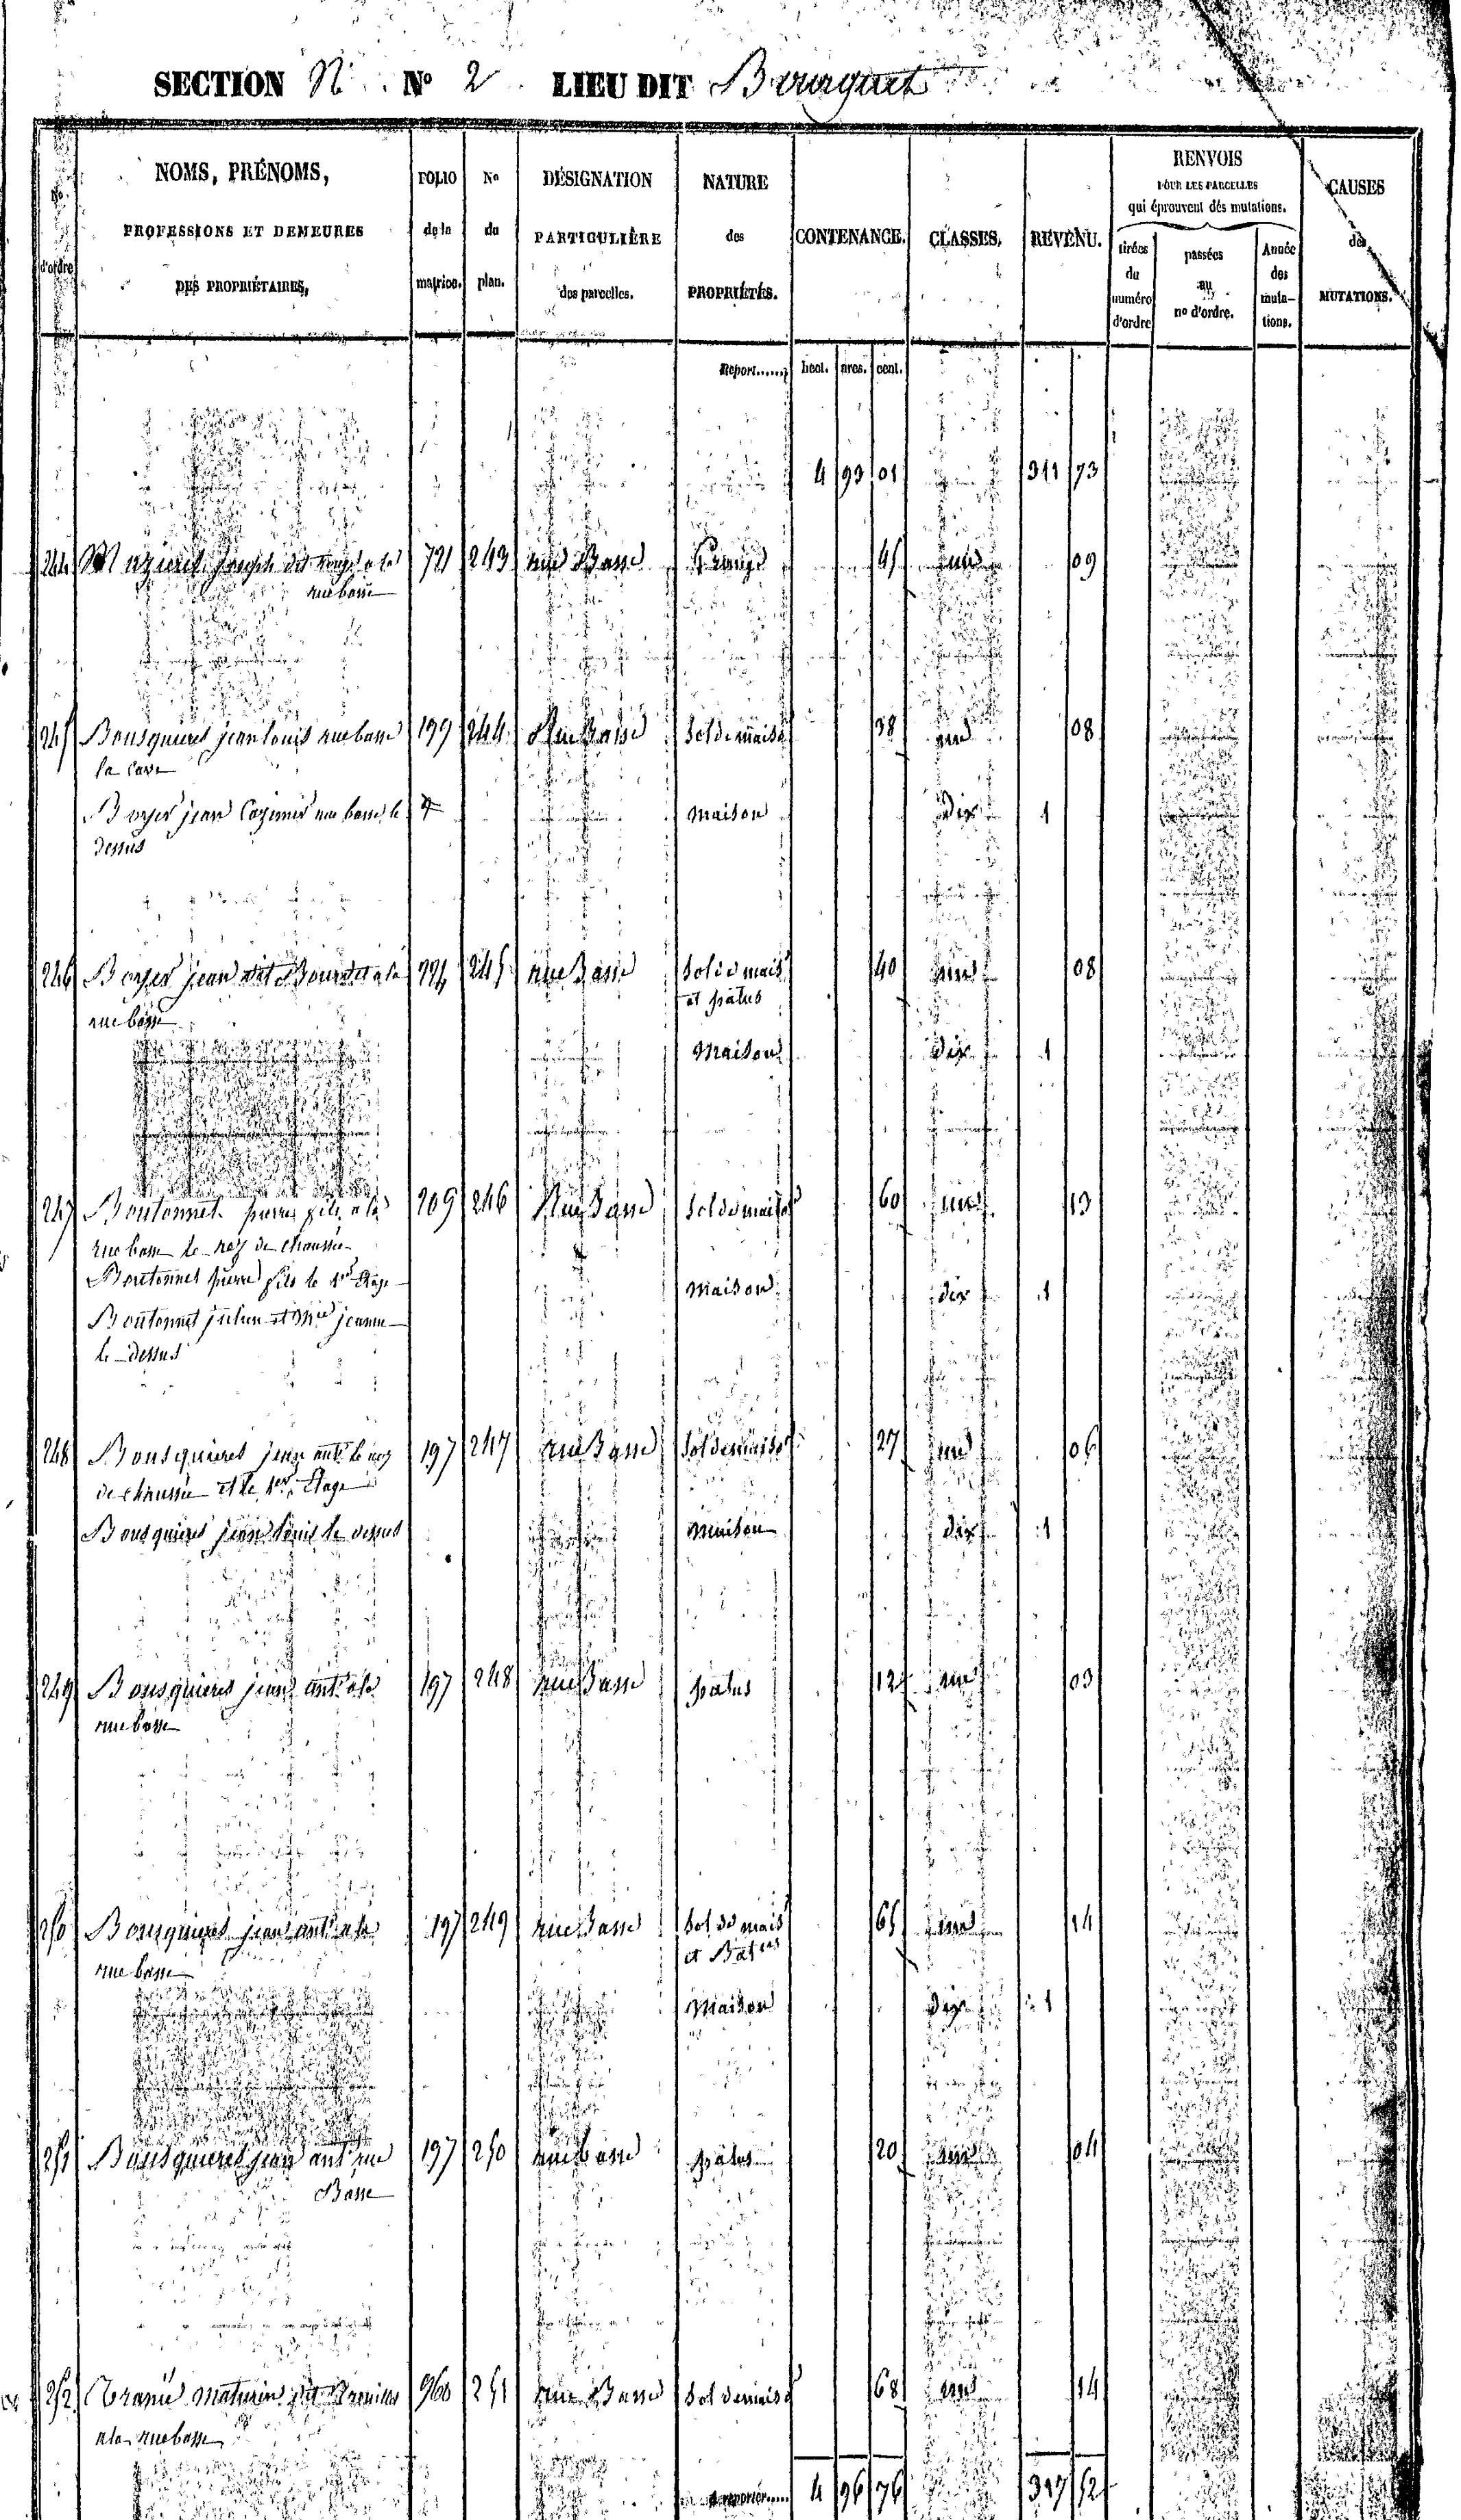 SECTION N. No 2 LIEU DIT Bourguet
No d'ordre
NOMS, PRÉNOMS,
PROFESSIONS ET DEMEURES
DES PROPRIÉTAIRES,
FOLIO de la matrice.
No du plan.
DÉSIGNATION PARTICULIÈRE des parcelles.
NATURE des PROPRIÉTÉS.
CONTENANCE.
CLASSES.
REVENU.
RENVOIS
POUR LES PARCELLES
qui éprouvent des mutations.
tirées du numéro d'ordre
passées au no d'ordre.
Année des mutations.
CAUSES des MUTATIONS.
Report...... hect. ares. cent.
4 93 01 311 73
244 Joseph dit a la 721 243 rue Basse 45 une 09
rue basse
245 Bousquieres jean louis rue basse 199 244 Rue Basse Sol de maison 38 une 08
la cave
Boyer jean Cazimir rue basse le maison dix 1
dessus
246 Boyer jean dit a la 224 245 rue Basse Sol de mais. 40 une 08
rue basse et patus
Maison dix 1
247 Boutonnet pierre fils a la 209 246 Rue Basse Sol de maison 60 une 13
rue basse le rez de chaussée
Boutonnet pierre fils le 1er Etage Maison dix 1
Boutonnet julien et Mie jeanne
le dessus
248 Bousquieres jean ant. le rez 197 247 rue Basse Sol de maison 27 une 06
de chaussée et le 1er Etage
Bousquieres jean louis le dessus Maison dix 1
249 Bousquieres jean ant. a la 197 248 rue Basse patus 12 une 03
rue basse
250 Bousquieres jean ant. a la 197 249 rue Basse Sol de mais. 65 une 14
rue basse et Bat
Maison dix 1
251 Bousquieres jean ant. rue 197 250 rue basse patus 20 une 04
Basse
252 Maturin dit 960 251 rue Basse Sol de maison 68 une 14
a la rue basse
A reporter..... 4 96 76 317 52